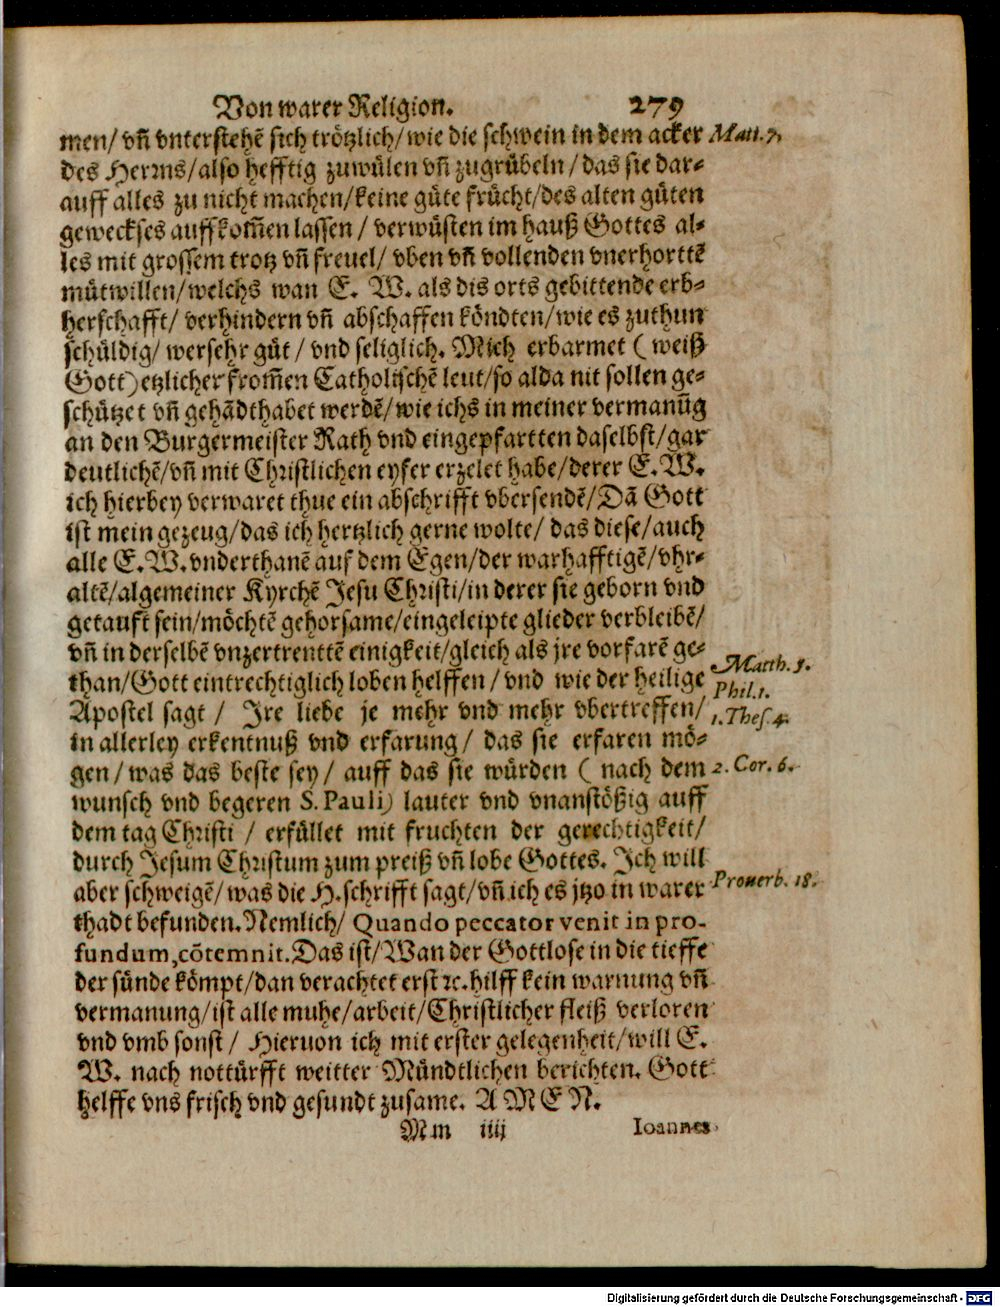 Von warer Religion. 279
men/ vñ vnterstehẽ sich trötzlich/ wie die schwein in dem acker Matt. 7.
des Herrns/ also hefftig zuwülen vñ zugrübeln/ das sie dar-
auff alles zu nicht machen/ keine güte frücht/ des alten güten
geweckses auffkom̃en lassen/ verwüsten im hauß Gottes al-
les mit grossem trotz vñ freuel/ vben vñ vollenden vnerhorttẽ
mütwillen/ welchs wan E. W. als dis orts gebittende erb-
herschafft/ verhindern vñ abschaffen köndten/ wie es zuthun
schüldig/ wer sehr güt/ vnd seliglich. Mich erbarmet (weiß
Gott) etzlicher from̃en Catholischẽ leut/ so alda nit sollen ge-
schützet vñ gehãdthabet werdẽ/ wie ichs in meiner vermanũg
an den Burgermeister Rath vnd eingepfartten daselbst/ gar
deutlichẽ/ vñ mit Christlichen eyfer erzelet habe/ derer E. W.
ich hierbey verwaret thue ein abschrifft vbersendẽ/ Dã Gott
ist mein gezeug/ das ich hertzlich gerne wolte/ das diese/ auch
alle E. W. vnderthanẽ auf dem Egen/ der warhafftigẽ/ vhr-
altẽ/ algemeiner Kyrchẽ Jesu Christi/ in derer sie geborn vnd
getauft sein/ möchtẽ gehorsame/ eingeleipte glieder verbleibẽ/
vñ in derselbẽ vnzertrenttẽ einigkeit/ gleich als jre vorfarẽ ge-
than/ Gott eintrechtiglich loben helffen/ vnd wie der heilige
Matth. 5.
Phil. 1.
Apostel sagt/ Ire liebe je mehr vnd mehr vbertreffen/ 1. Thes. 4.
in allerley erkentnuß vnd erfarung/ das sie erfaren mö-
gen/ was das beste sey/ auff das sie würden (nach dem 2. Cor. 6.
wunsch vnd begeren S. Pauli) lauter vnd vnanstößig auff
dem tag Christi/ erfüllet mit fruchten der gerechtigkeit/
durch Jesum Christum zum preiß vñ lobe Gottes. Ich will
aber schweigẽ/ was die H. schrifft sagt/ vñ ich es jtzo in warer Prouerb. 18.
thadt befunden. Nemlich/ Quando peccator venit in pro-
fundum, cõtemnit. Das ist/ Wan der Gottlose in die tieffe
der sünde kömpt/ dan verachtet erst ꝛc. hilff kein warnung vñ
vermanung/ ist alle muhe/ arbeit/ Christlicher fleiß verloren
vnd vmb sonst/ Hieruon ich mit erster gelegenheit/ will E.
W. nach nottürfft weitter Mündtlichen berichten. Gott
helffe vns frisch vnd gesundt zusame. A M E N.
Mm iiij Ioannes
Digitalisierung gefördert durch die Deutsche Forschungsgemeinschaft - DFG